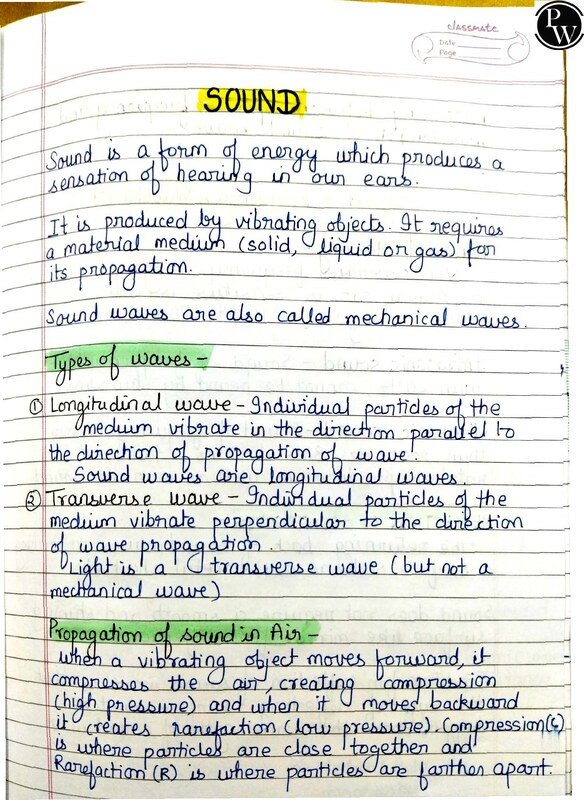 PW
classmate
Date
Page
SOUND
Sound is a form of energy which produces a
sensation of hearing in our ears.
It is produced by vibrating objects. It requires
a material medium (solid, liquid or gas) for
its propagation.
Sound waves are also called mechanical waves.
Types of waves -
① Longitudinal wave - Individual particles of the
medium vibrate in the direction parallel to
the direction of propagation of wave.
Sound waves are longitudinal waves.
② Transverse wave - Individual particles of the
medium vibrate perpendicular to the direction
of wave propagation.
Light is a transverse wave (but not a
mechanical wave)
Propagation of sound in Air -
When a vibrating object moves forward, it
compresses the air, creating compression
(high pressure) and when it moves backward
it creates rarefaction (low pressure). Compression(C)
is where particles are close together and
Rarefaction (R) is where particles are farther apart.